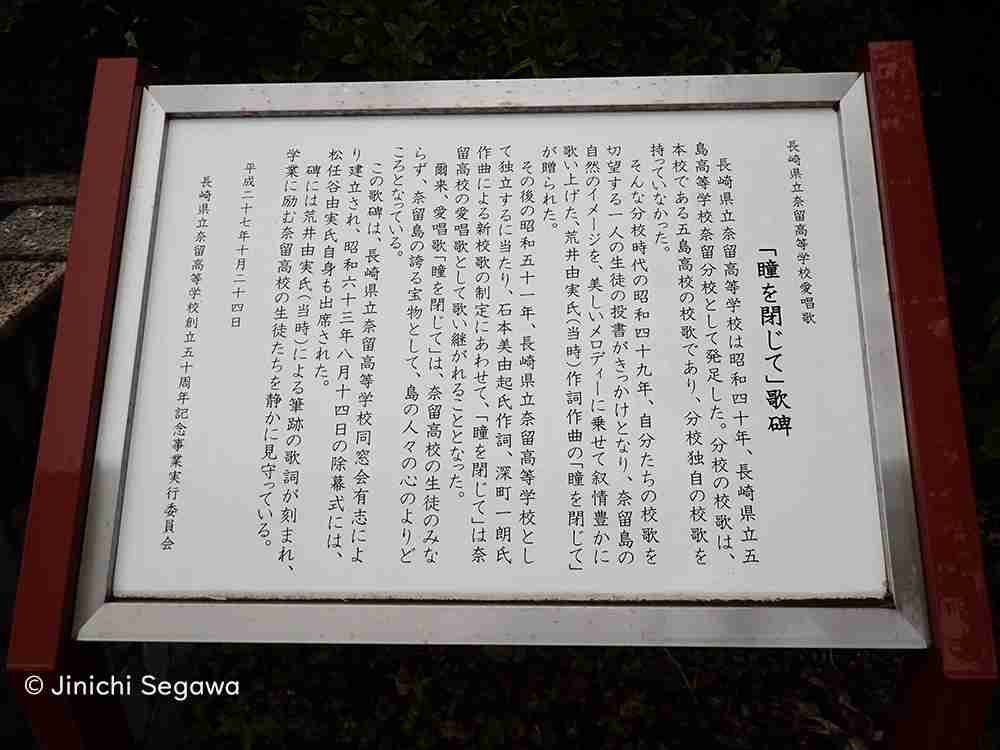 長崎県立奈留高等学校愛唱歌
「瞳を閉じて」歌碑
長崎県立奈留高等学校は昭和四十年、長崎県立五
島高等学校奈留分校として発足した。分校の校歌は、
本校である五島高校の校歌であり、分校独自の校歌を
持っていなかった。
そんな分校時代の昭和四十九年、自分たちの校歌を
切望する一人の生徒の投書がきっかけとなり、奈留島の
自然のイメージを、美しいメロディーに乗せて叙情豊かに
歌い上げた、荒井由実氏(当時)作詞作曲の「瞳を閉じて」
が贈られた。
その後の昭和五十一年、長崎県立奈留高等学校とし
て独立するに当たり、石本美由起氏作詞、深町一朗氏
作曲による新校歌の制定にあわせて、「瞳を閉じて」は奈
留高校の愛唱歌として歌い継がれることとなった。
爾来、愛唱歌「瞳を閉じて」は、奈留高校の生徒のみな
らず、奈留島の誇る宝物として、島の人々の心のよりど
ころとなっている。
この歌碑は、長崎県立奈留高等学校同窓会有志によ
り建立され、昭和六十三年八月十四日の除幕式には、
松任谷由実氏自身も出席された。
碑には荒井由実氏(当時)による筆跡の歌詞が刻まれ、
学業に励む奈留高校の生徒たちを静かに見守っている。
平成二十七年十月二十四日
長崎県立奈留高等学校創立五十周年記念事業実行委員会
© Jinichi Segawa